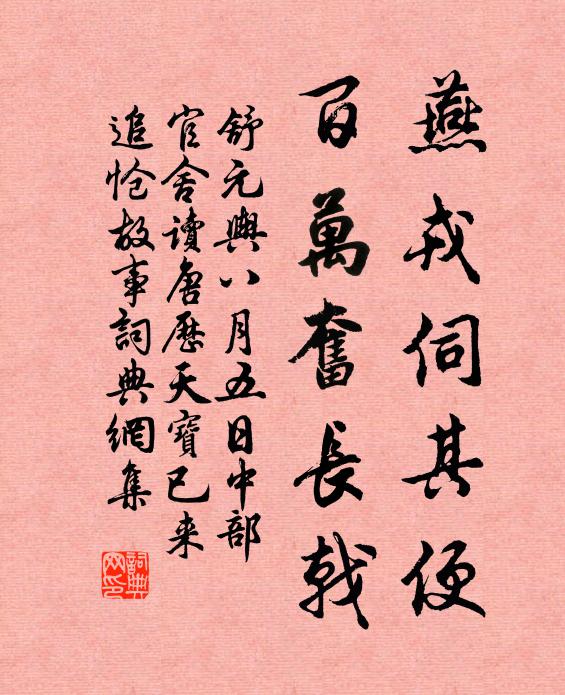 燕戎伺其便
百萬奮長戟
舒元輿八月五日中部
官舍讀唐歷天寶已来
追愴故事詞典網集
詞典网印